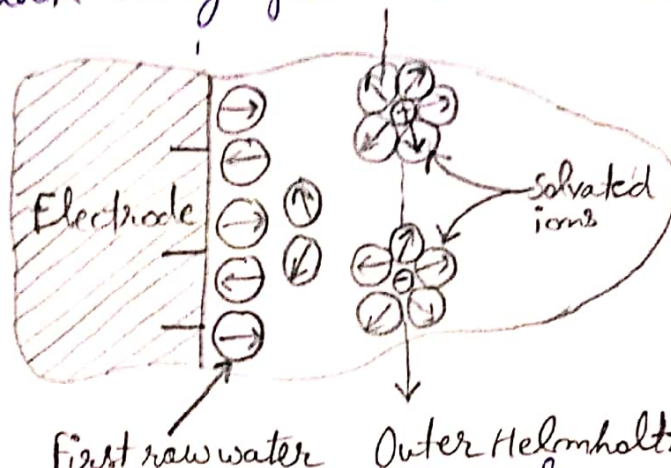 Electrode
Solvated
ions
First row water
Outer Helmholt